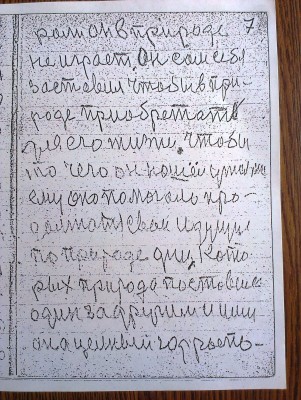 роли он в природе 7
не играет. Он сам себя
заставил чтобы в при-
роде приобретать
для его жизни, чтобы
то чего он нашёл
ему оно помогало про-
идущие
по природе дни, которых природа поставила
один за другим и ими
она